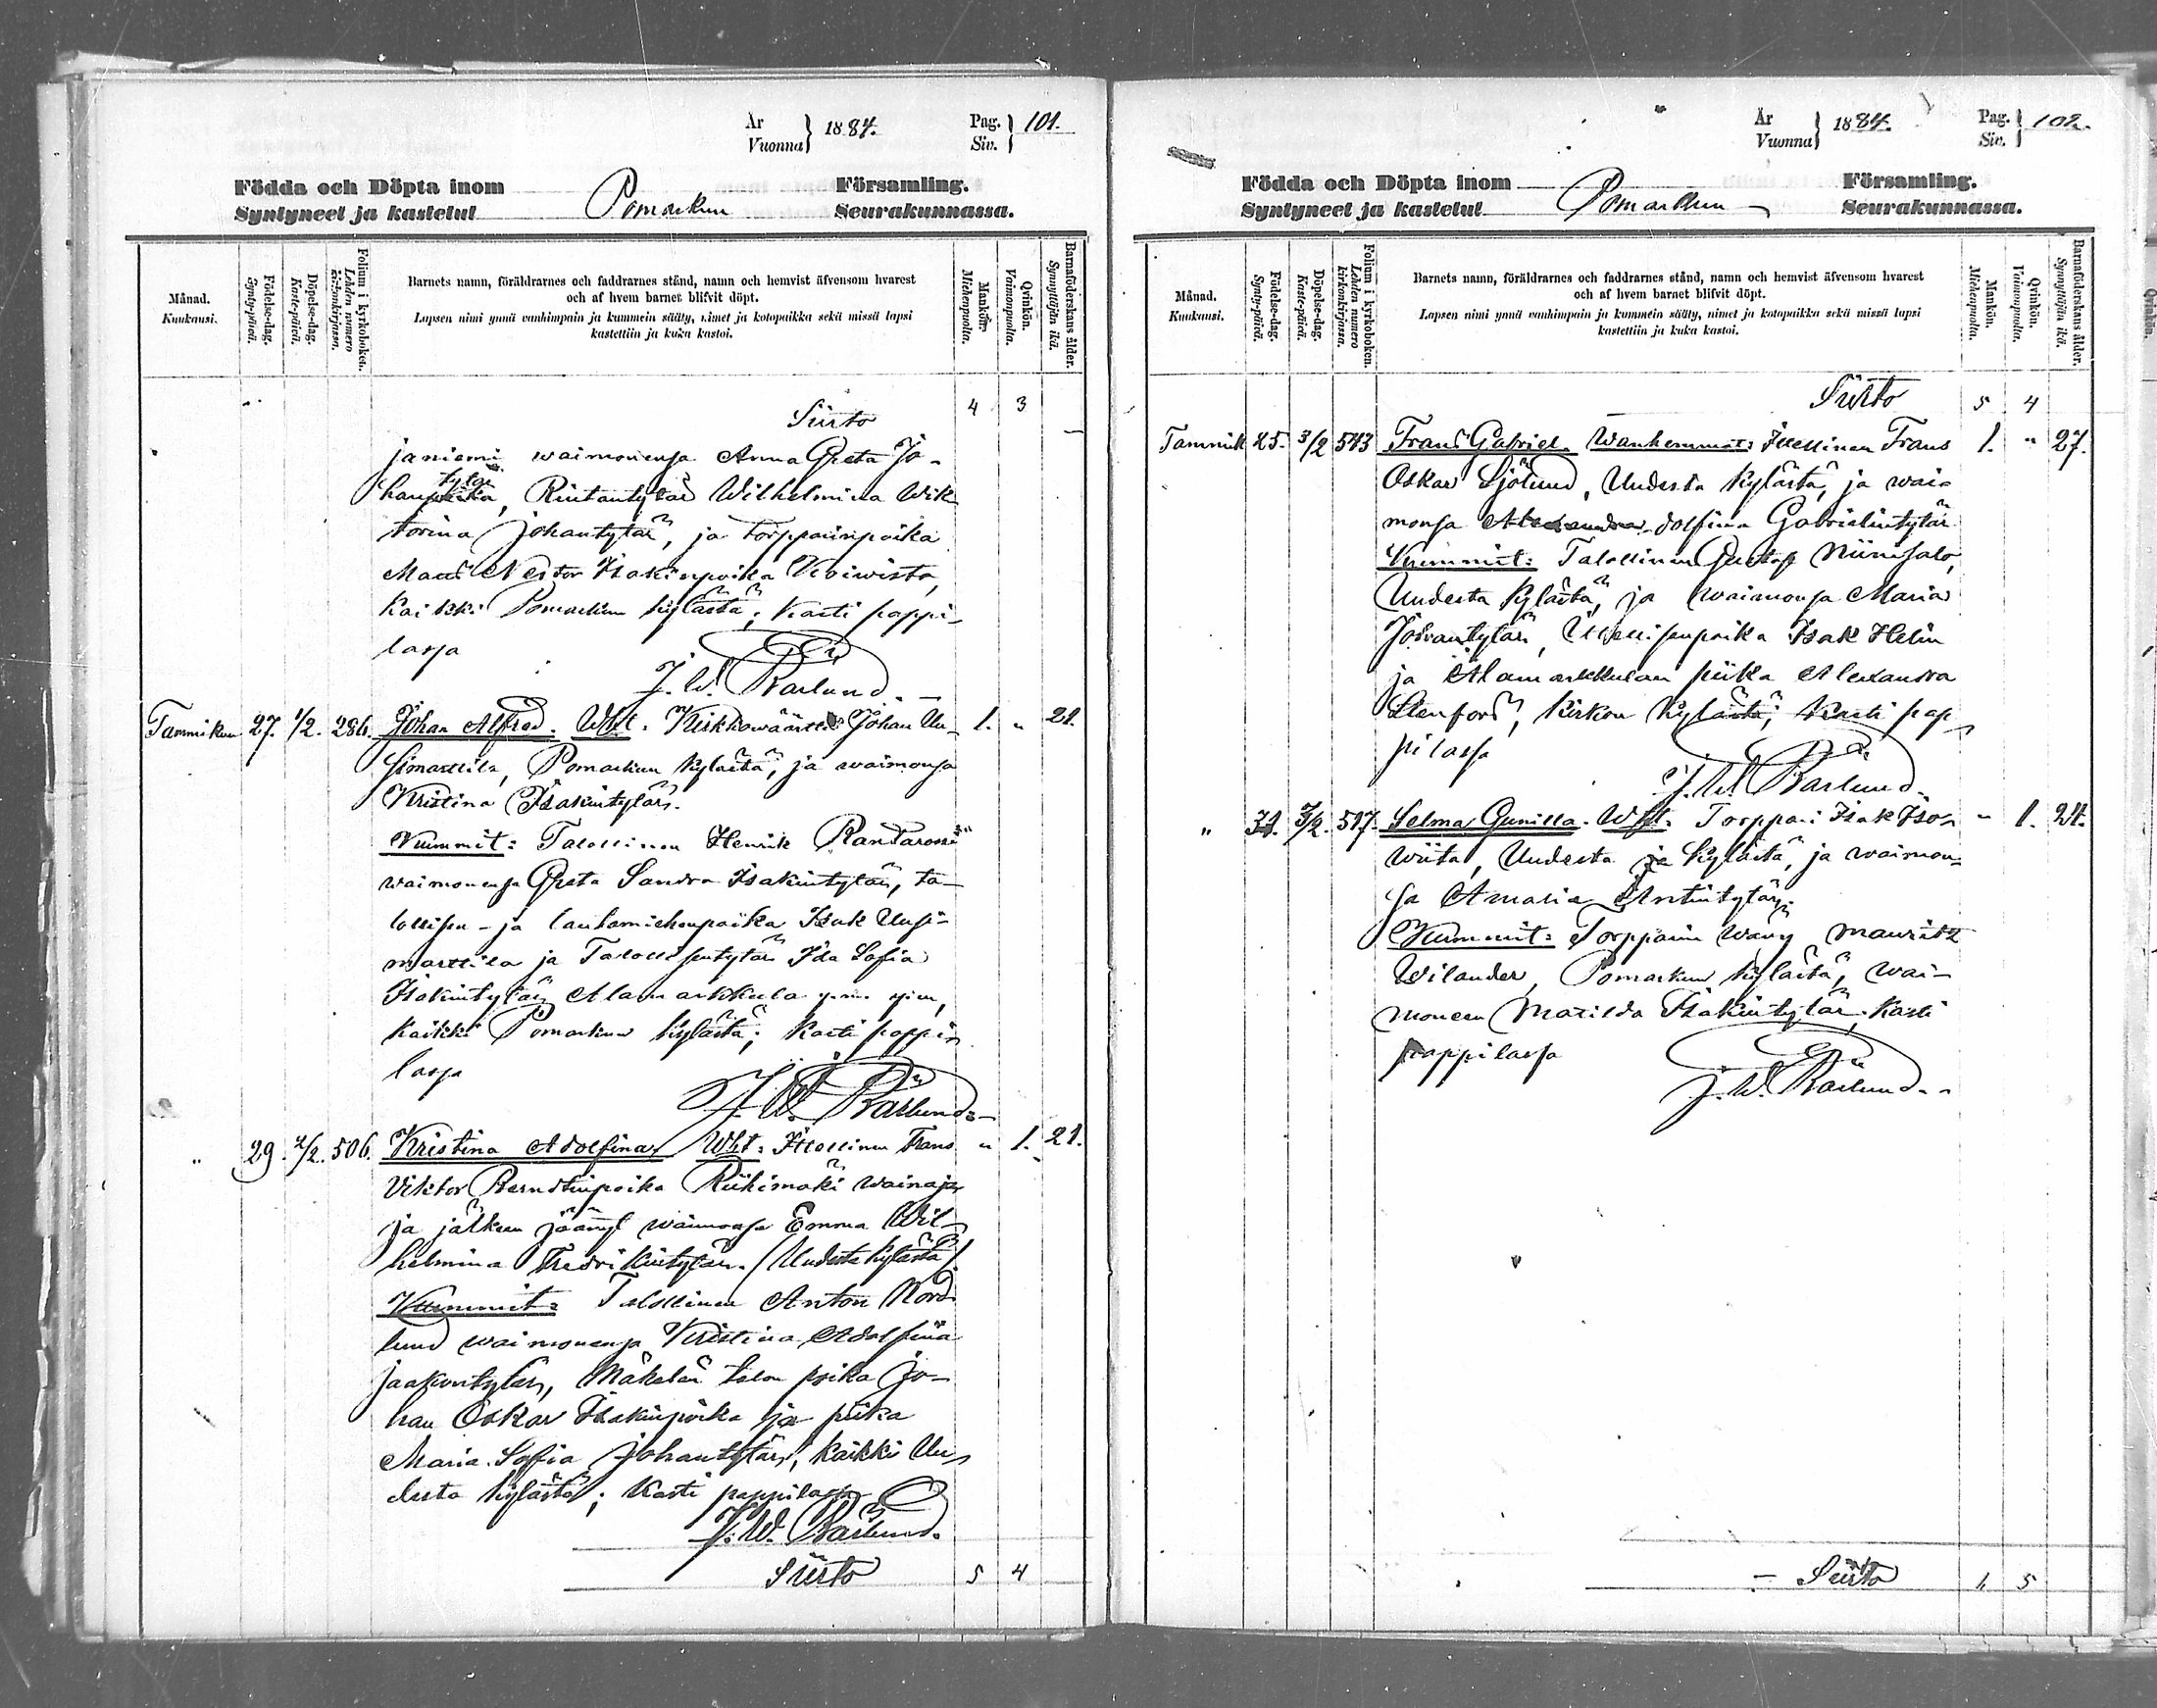 År
Vuonna } 1884.
Pag.
Siv. } 101.
Födda och Döpta inom
Syntyneet ja kastetut
Pomarkun
Församling.
Seurakunnassa.
Månad.
Kuukausi.
Födelse-dag.
Synty-päivä.
Döpelse-dag.
Kaste-päivä.
Folium i kyrkoboken.
Lehden numero kirkonkirjassa.
Barnets namn, föräldrarnes och faddrarnes stånd, namn och hemvist äfvensom hvarest
och af hvem barnet blifvit döpt.
Lapsen nimi ynnä vanhimpain ja kummein sääty, nimet ja kotopaikka sekä missä lapsi
kastettiin ja kuka kastoi.
Mankön.
Miehenpuolia.
Qvinkön.
Vaimonpuolia.
Barnaföderskans ålder.
Synnyttäjän ikä.
Siirto 4 3
janiemi waimonensa Anna Greta Jo-
tytär
han, Rintantytär Wilhelmina Wik
torina Johantytär, ja torpparinpoika
Nestor Isakinpoika Koiwisto,
kaikki Pomarkun kylästä; kasti pappi-
lassa
J. W. Bärlund.
Tammikuu 27. 1/2. 286. Johan Alfred. Wht. Johan Uu- 1. " 21.
simarttila, Pomarkun kylästä, ja waimonsa
Kristina Isakintytär.
Kummit: Talollinen Henrik
waimonensa Greta Sandra Isakintytär, ta-
lollisen- ja lautamiehenpoika Isak Uusi-
marttila ja Talollisentytär Ida Sofia
Isakintytär Alamarkkula
kaikki Pomarkun kylästä; kasti pappi-
lassa
J. W. Bärlund.
" 29. 2/2. 506. Kristina Adolfina. Wht: Itsellinen Frans " 1. 21.
Viktor Berndtinpoika Riihimäki wainaja
ja jälkeen jäänyt waimonsa Emma Wil-
helmina Fredrikintytär. (Uudesta kylästä)
Kummit: Talollinen Anton Nord
lund waimonensa Kristina Adolfina
Jaakontytär, Mäkelän talon poika Jo-
han Oskar Isakinpoika ja piika
Maria Sofia Johantytär, kaikki Uu-
desta kylästä; kasti pappilassa
J. W. Bärlund.
Siirto 5 4
År
Vuonna } 1884.
Pag.
Siv. } 102.
Födda och Döpta inom
Syntyneet ja kastetut
Pomarkun
Församling.
Seurakunnassa.
Månad.
Kuukausi.
Födelse-dag.
Synty-päivä.
Döpelse-dag.
Kaste-päivä.
Folium i kyrkoboken.
Lehden numero kirkonkirjassa.
Barnets namn, föräldrarnes och faddrarnes stånd, namn och hemvist äfvensom hvarest
och af hvem barnet blifvit döpt.
Lapsen nimi ynnä vanhimpain ja kummein sääty, nimet ja kotopaikka sekä missä lapsi
kastettiin ja kuka kastoi.
Mankön.
Miehenpuolia.
Qvinkön.
Vaimonpuolia.
Barnaföderskans ålder.
Synnyttäjän ikä.
Qvinkön.
Siirto 5 4
Tammik 25. 3/2 543 Frans Gabriel. Wanhemmat: Itsellinen Frans 1. " 27.
Oskar Sjölund, Uudesta kylästä, ja wai-
monsa dolfina Gabrielintytär
Kummit: Talollinen Gustaf Niinisalo,
Uudesta kylästä, ja waimonsa Maria
Itsellisenpoika Isak Helin
ja Alamarkkulan piika Alexandra
Stenfors, kirkon kylästä; kasti pap
pilassa
J. W. Bärlund.
" 31. 3/2. 517. Selma Gunilla. Wht. Torppari Isak Iso- " 1. 24.
wiita, Uudesta ja kylästä, ja waimon-
sa Amalia Antintytär.
Kummit: Torpparin wävy Mauritz
Wilander, Pomarkun kylästä, wai-
moneen Matilda Isakintytär. kasti
pappilassa
J. W. Bärlund.
Siirto 5